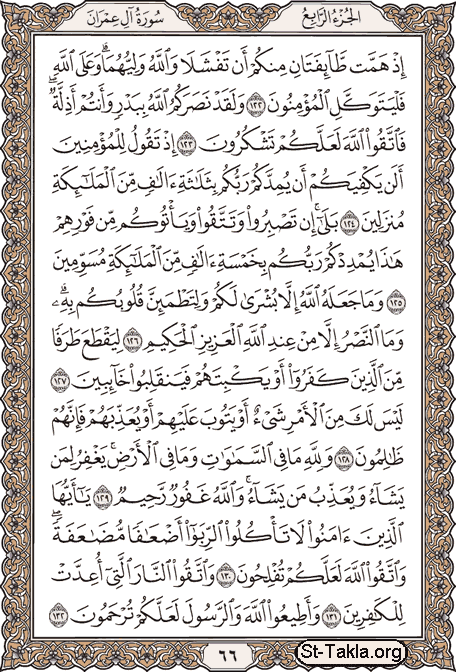 الجزء الرابع
سورة آل عمران
إِذْ هَمَّت طَّآئِفَتَانِ مِنكُمْ أَن تَفْشَلَا وَٱللَّهُ وَلِيُّهُمَا ۗ وَعَلَى ٱللَّهِ
فَلْيَتَوَكَّلِ ٱلْمُؤْمِنُونَ ١٢٢ وَلَقَدْ نَصَرَكُمُ ٱللَّهُ بِبَدْرٍ وَأَنتُمْ أَذِلَّةٌ ۖ
فَٱتَّقُوا۟ ٱللَّهَ لَعَلَّكُمْ تَشْكُرُونَ ١٢٣ إِذْ تَقُولُ لِلْمُؤْمِنِينَ
أَلَن يَكْفِيَكُمْ أَن يُمِدَّكُمْ رَبُّكُم بِثَلَٰثَةِ ءَالَٰفٍ مِّنَ ٱلْمَلَٰٓئِكَةِ
مُنزَلِينَ ١٢٤ بَلَىٰٓ ۚ إِن تَصْبِرُوا۟ وَتَتَّقُوا۟ وَيَأْتُوكُم مِّن فَوْرِهِمْ
هَٰذَا يُمْدِدْكُمْ رَبُّكُم بِخَمْسَةِ ءَالَٰفٍ مِّنَ ٱلْمَلَٰٓئِكَةِ مُسَوِّمِينَ
١٢٥ وَمَا جَعَلَهُ ٱللَّهُ إِلَّا بُشْرَىٰ لَكُمْ وَلِتَطْمَئِنَّ قُلُوبُكُم بِهِۦ ۗ
وَمَا ٱلنَّصْرُ إِلَّا مِنْ عِندِ ٱللَّهِ ٱلْعَزِيزِ ٱلْحَكِيمِ ١٢٦ لِيَقْطَعَ طَرَفًا
مِّنَ ٱلَّذِينَ كَفَرُوٓا۟ أَوْ يَكْبِتَهُمْ فَيَنقَلِبُوا۟ خَآئِبِينَ ١٢٧
لَيْسَ لَكَ مِنَ ٱلْأَمْرِ شَىْءٌ أَوْ يَتُوبَ عَلَيْهِمْ أَوْ يُعَذِّبَهُمْ فَإِنَّهُمْ
ظَٰلِمُونَ ١٢٨ وَلِلَّهِ مَا فِى ٱلسَّمَٰوَٰتِ وَمَا فِى ٱلْأَرْضِ ۚ يَغْفِرُ لِمَن
يَشَآءُ وَيُعَذِّبُ مَن يَشَآءُ ۚ وَٱللَّهُ غَفُورٌ رَّحِيمٌ ١٢٩ يَٰٓأَيُّهَا
ٱلَّذِينَ ءَامَنُوا۟ لَا تَأْكُلُوا۟ ٱلرِّبَوٰٓا۟ أَضْعَٰفًا مُّضَٰعَفَةً ۖ
وَٱتَّقُوا۟ ٱللَّهَ لَعَلَّكُمْ تُفْلِحُونَ ١٣٠ وَٱتَّقُوا۟ ٱلنَّارَ ٱلَّتِىٓ أُعِدَّتْ
لِلْكَٰفِرِينَ ١٣١ وَأَطِيعُوا۟ ٱللَّهَ وَٱلرَّسُولَ لَعَلَّكُمْ تُرْحَمُونَ ١٣٢
٦٦
St-Takla.org